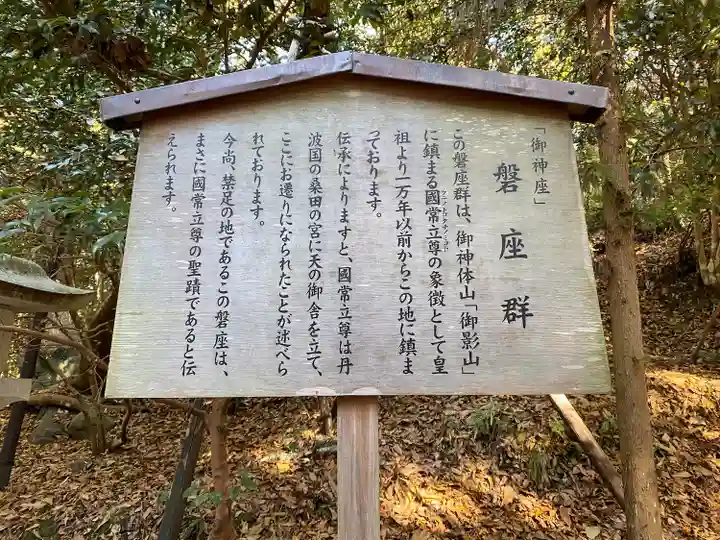 「御神座」
磐座群
この磐座群は、御神体山「御影山」
に鎮まる國常立尊の象徴として皇
祖より一万年以前からこの地に鎮ま
っております。
伝承によりますと、國常立尊は丹
波国の桑田の宮に天の御舎を立て、
ここにお遷りになられたことが述べら
れております。
今尚、禁足の地であるこの磐座は、
まさに國常立尊の聖蹟であると伝
えられます。